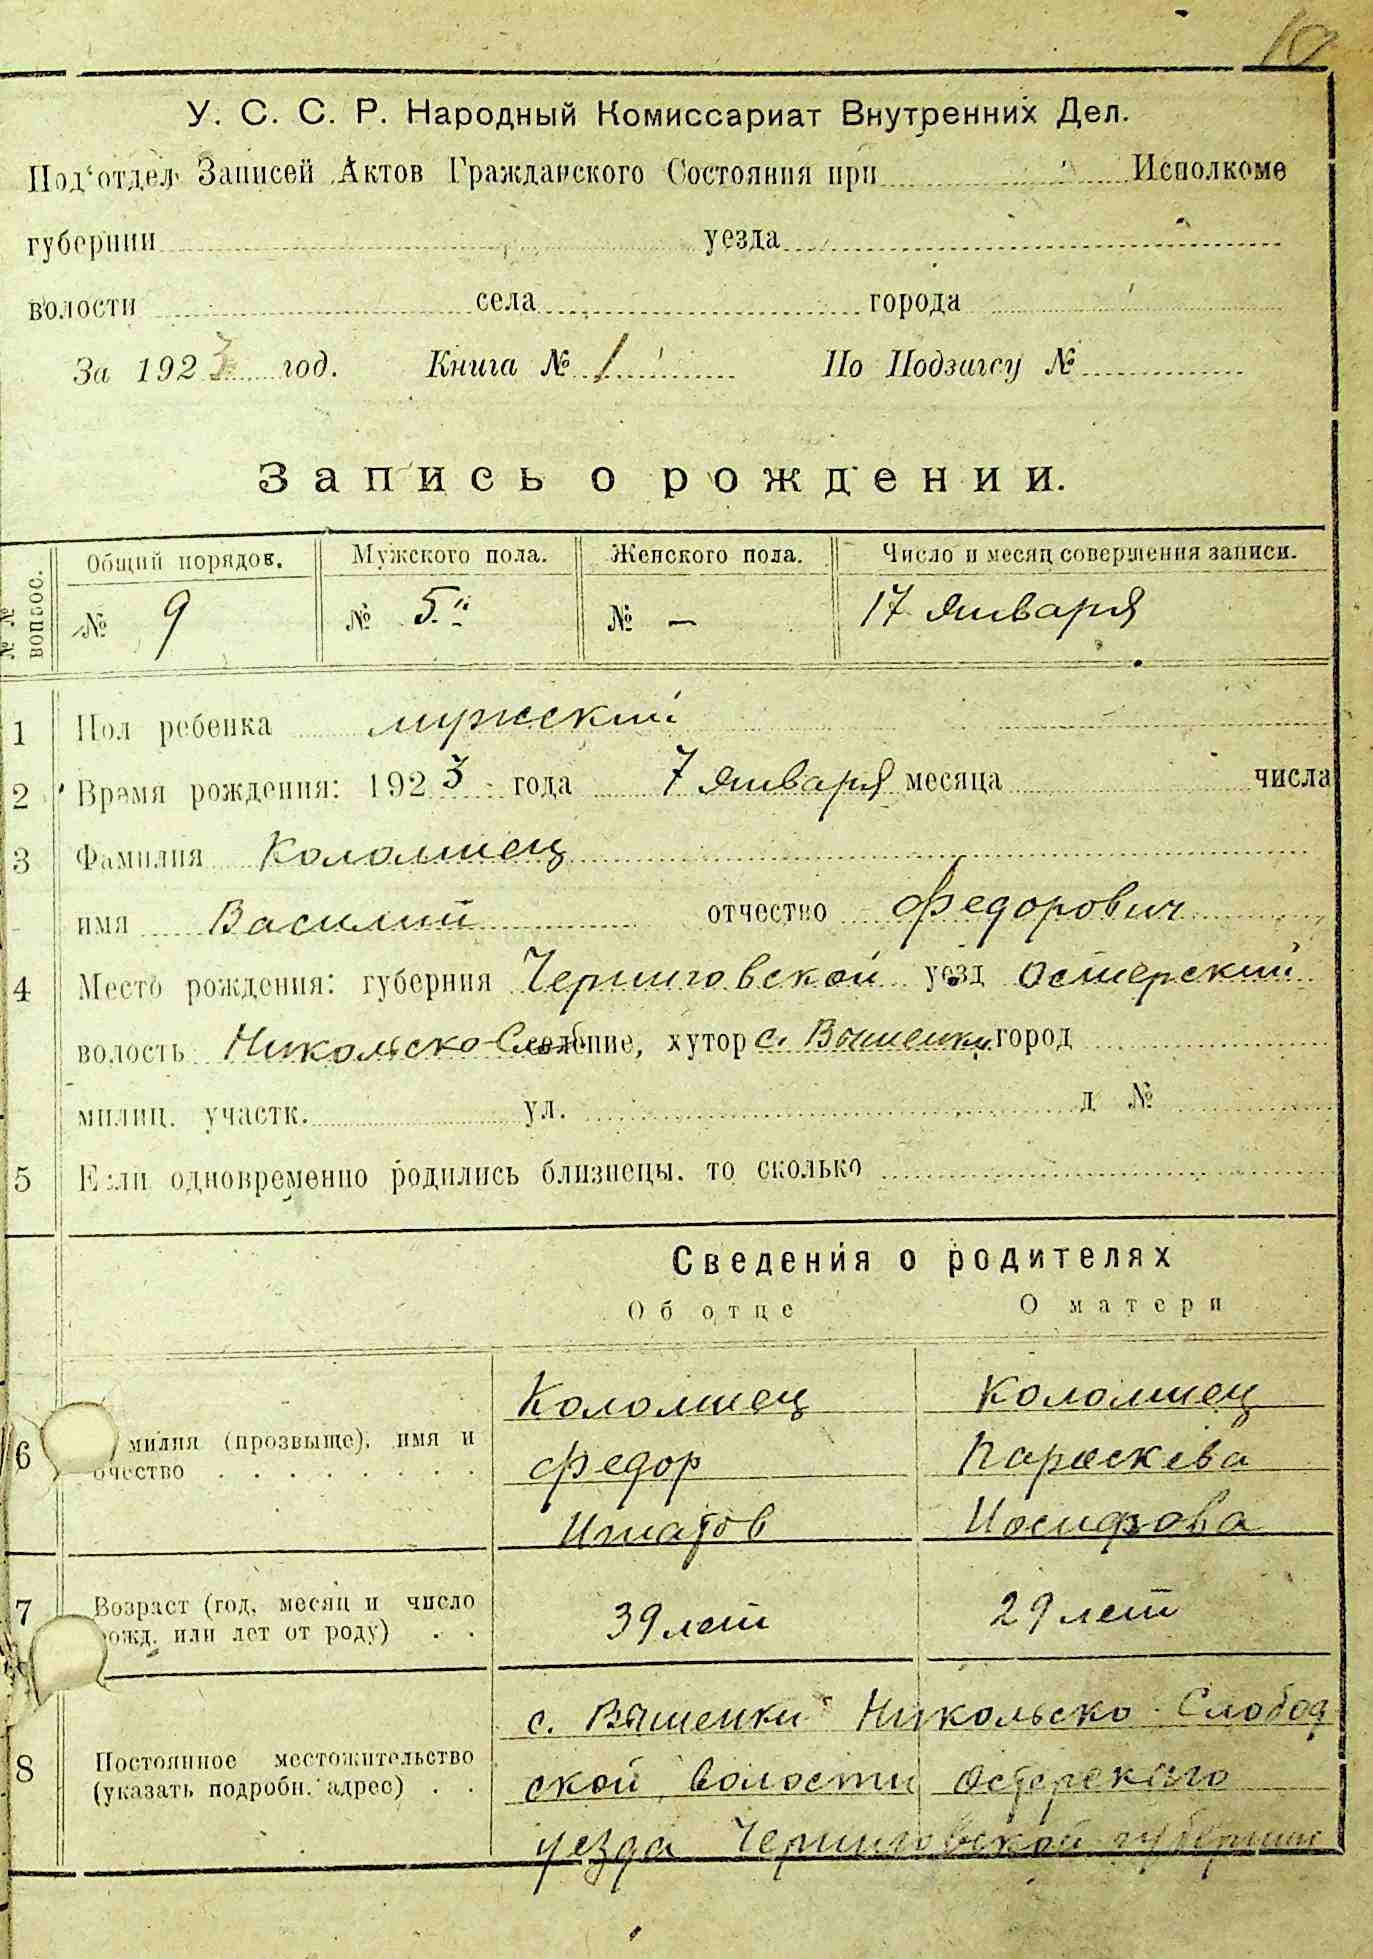 10
У. С. С. Р. Народный Комиссариат Внутренних Дел.
Под'отдел Записей Актов Гражданского Состояния при Исполкоме
губернии уезда
волости села города
За 1923 год. Книга № 1 По Подзагсу №
Запись о рождении.
№№ вопрос. Общий порядов. Мужского пола. Женского пола. Число и месяц совершения записи.
№ 9 № 5" № — 17 января
1 Пол ребенка мужский
2 Время рождения: 1923 года 7 января месяца числа
3 Фамилия Коломиец
имя Василий отчество Федорович
4 Место рождения: губерния Черниговской уезд Остерский
волость Никольско-Слоб селение, хутор с. Вишенки город
милиц. участк. ул. д №
5 Если одновременно родились близнецы. то сколько
Сведения о родителях
Об отце О матери
Коломиец Коломиец
6 милия (прозвыще), имя и Федор Параскева
очество Игнатов Иосифова
7 Возраст (год, месяц и число 39 лет 29 лет
рожд. или лет от роду)
с. Вишенки Никольско-Слобод
8 Постоянное местожительство ской волости Остерского
(указать подробн. адрес) уезда Черниговской губернии